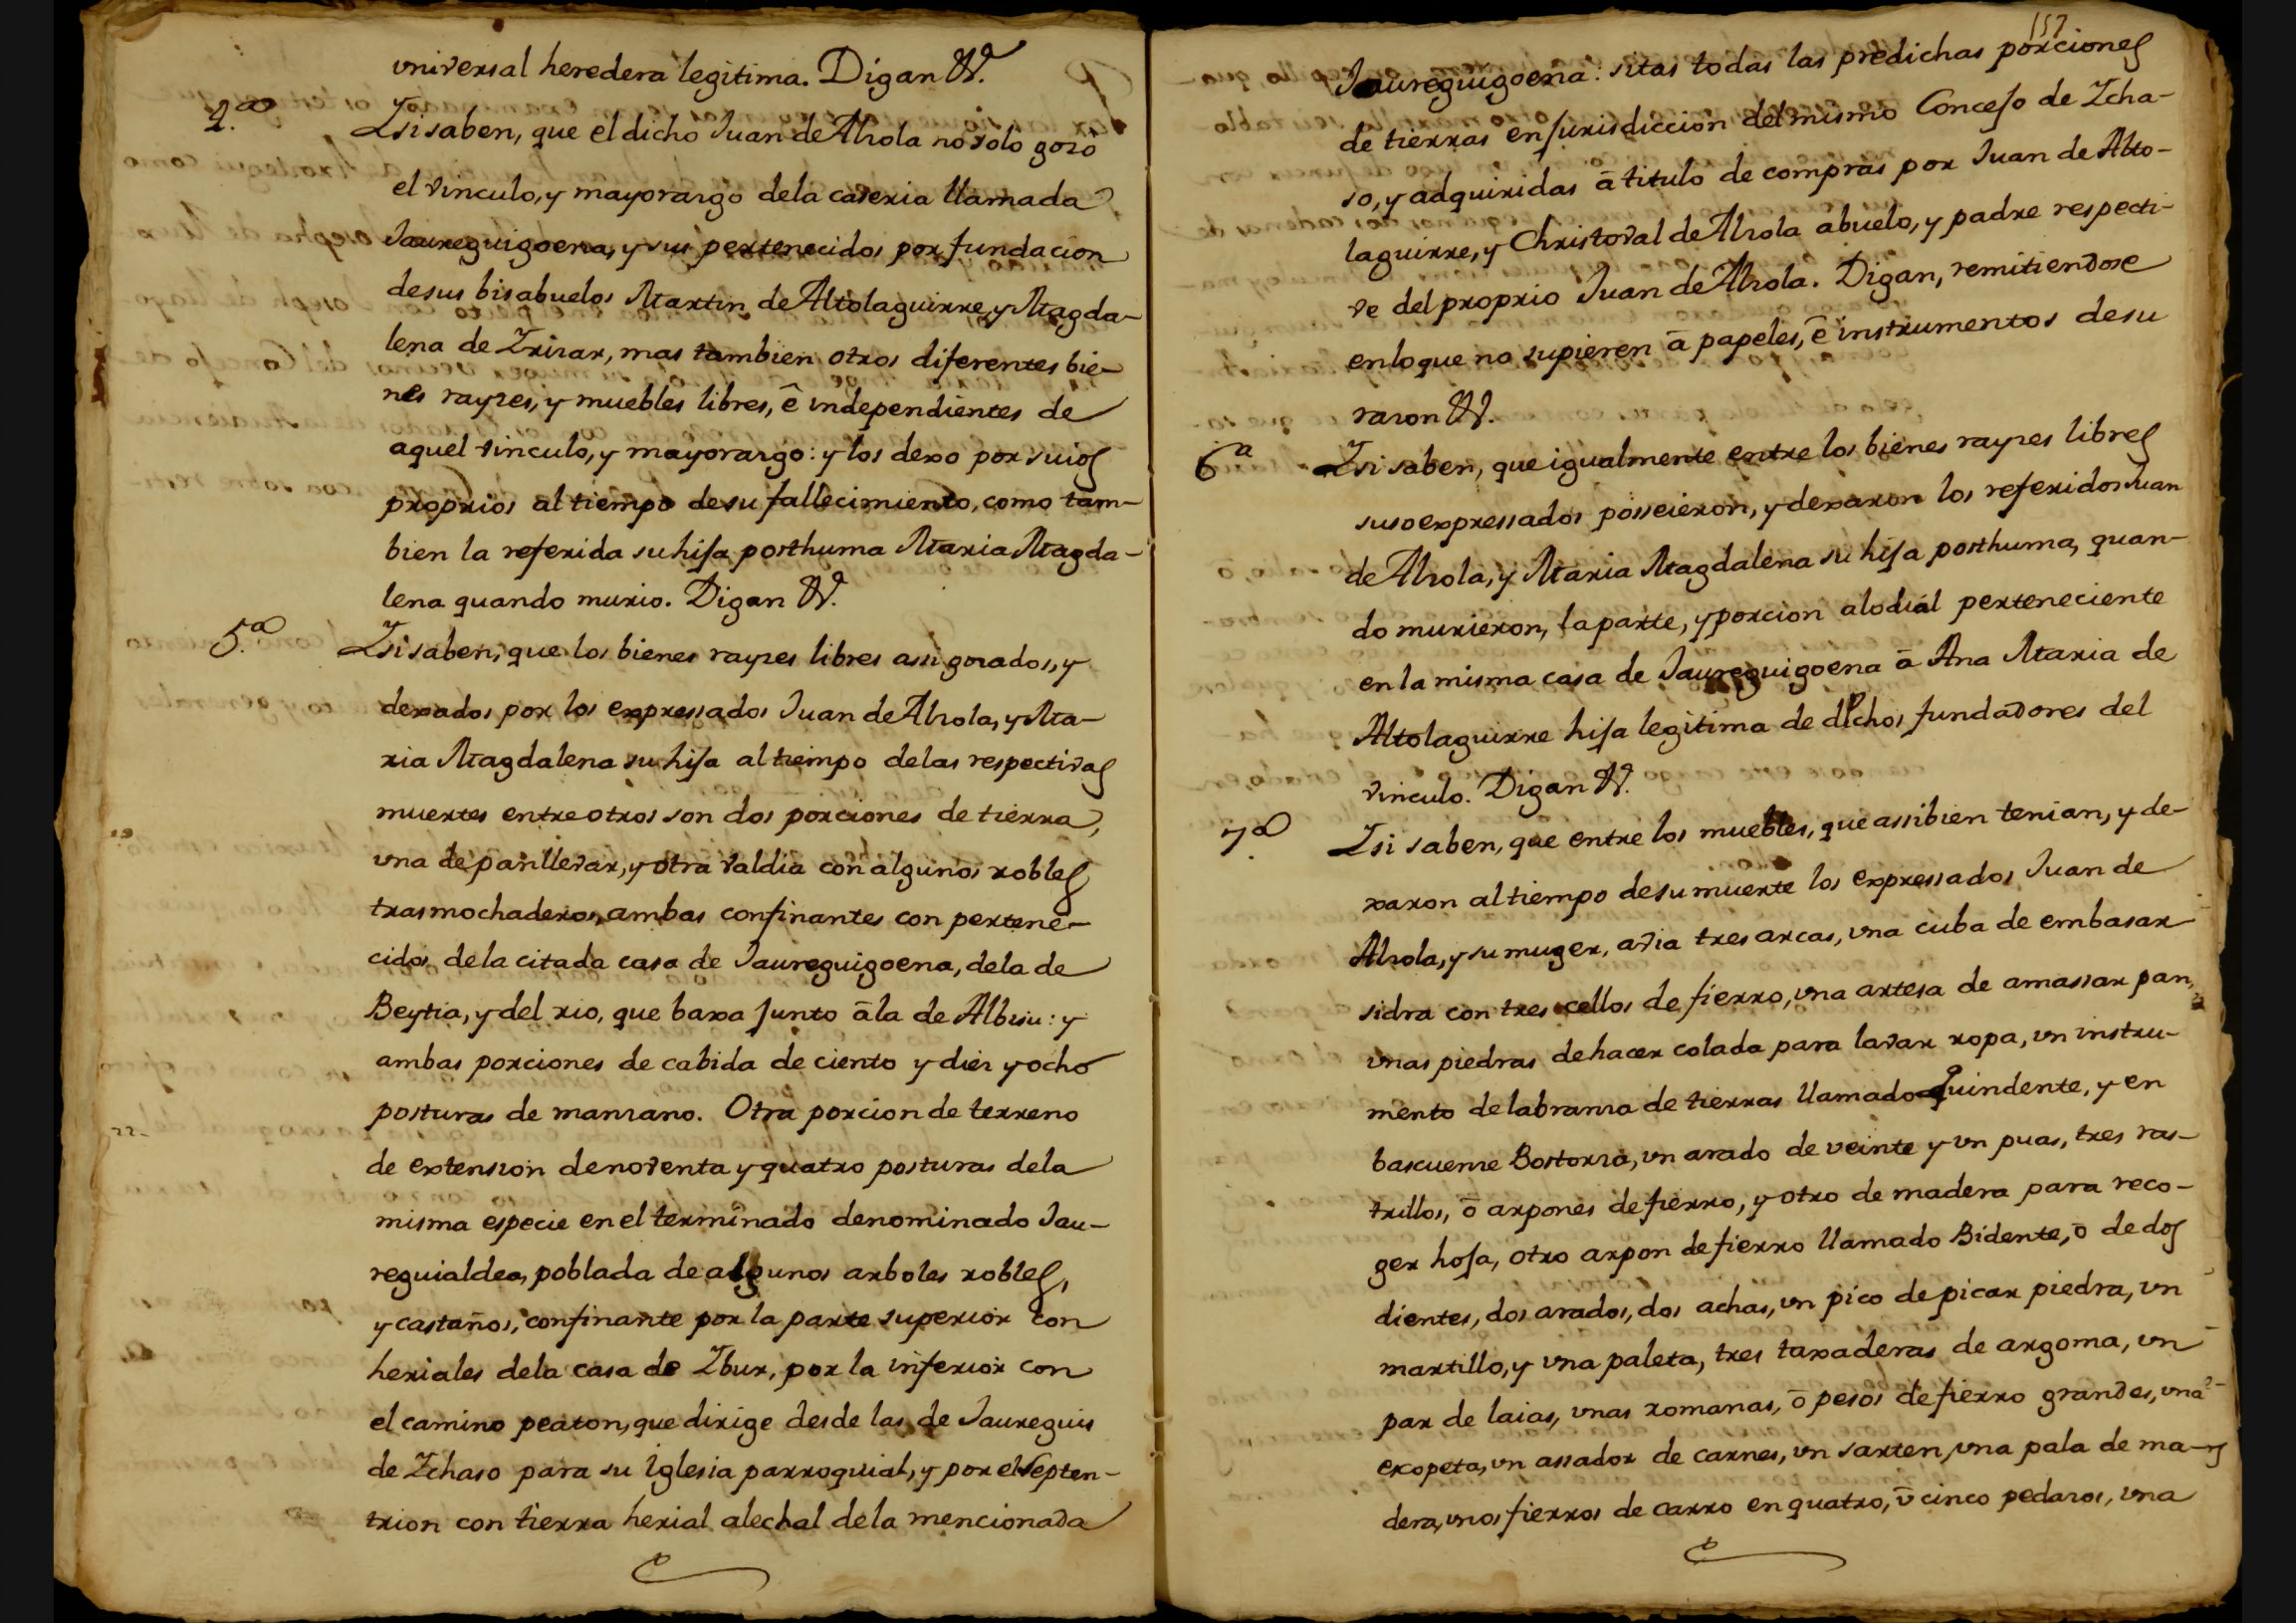 vniversal heredera legitima. Digan &.
4.ª
Ysi saben, que el dicho Juan de Alzola no solo gozò
el vinculo, y mayorazgo dela caseria llamada
Jaureguigoena, y sus pertenecidos por fundacion
desus bisabuelos Martin de Altolaguirre, y Magda-
lena de Yrizar, mas tambien otros diferentes bie-
nes rayzes, y muebles libres, ê independientes de
aquel vinculo, y mayorazgo: y los dexo por suios
proprios al tiempo desu fallecimiento, como tam-
bien la referida su hija posthuma Maria Magda-
lena quando murio. Digan &.
5.ª
Ysi saben, que los bienes rayzes libres assi gozados, y
dexados por los expressados Juan de Alzola, y Ma-
ria Magdalena su hija al tiempo delas respectivas
muertes entre otros son dos porciones de tierra,
vna de panllevar, y otra valdia con algunos robles
trasmochaderos, ambas confinantes con pertene-
cidos dela citada casa de Jaureguigoena, dela de
Beytia, y del rio, que baxa junto â la de Albisu: y
ambas porciones de cabida de ciento y diez y ocho
posturas de manzano. Otra porcion de terreno
de extension denoventa y quatro posturas dela
misma especie en el terminado denominado Jau-
reguialdea, poblada de algunos arboles robles,
y castaños, confinante por la parte superior con
heriales dela casa de Ybur, por la inferior con
el camino peaton, que dirige desde las de Jaureguis
de Ychaso para su Iglesia parroquial, y por el Septen-
trion con tierra herial alechal dela mencionada
157
Jaureguigoena: sitas todas las predichas porciones
de tierras en jurisdiccion del mismo Concejo de Ycha-
so, y adquiridas â titulo de compras por Juan de Alto-
laguirre, y Christoval de Alzola abuelo, y padre respecti-
ve del proprio Juan de Alzola. Digan, remitiendose
enloque no supieren â papeles, ê instrumentos desu
razon &.
6ª
Ysi saben, que igualmente entre los bienes rayzes libres
susoexpressados posseieron, y dexaron los referidos Juan
de Alzola, y Maria Magdalena su hija posthuma, quan-
do murieron, la parte, y porcion alodial perteneciente
en la misma casa de Jaureguigoena â Ana Maria de
Altolaguirre hija legitima de dichos fundadores del
vinculo. Digan &.
7.ª
Ysi saben, que entre los muebles, que assibien tenian, y de-
xaron al tiempo desu muerte los expressados Juan de
Alzola, y su muger, avia tres arcas, vna cuba de embasar
sidra con tres cellos de fierro, vna artesa de amassar pan,
vnas piedras de hacer colada para lavar ropa, vn instru-
mento delabranza de tierras llamado Quindente, y en
bascuenze Bostorza, vn arado de veinte y vn puas, tres ras-
trillos, ô arpones de fierro, y otro de madera para reco-
ger hoja, otro arpon de fierro llamado Bidente, ô de dos
dientes, dos arados, dos achas, vn pico de picar piedra, vn
martillo, y vna paleta, tres taxaderas de argoma, vn
par de laias, vnas romanas, ô pesos de fierro grandes, vna
excopeta, vn assador de carnes, vn sarten, vna pala de ma-
dera, vnos fierros de carro en quatro, û cinco pedazos, vna